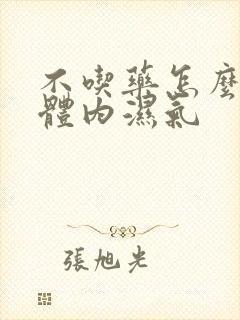 不喫藥怎麼
體內濕氣
張旭光